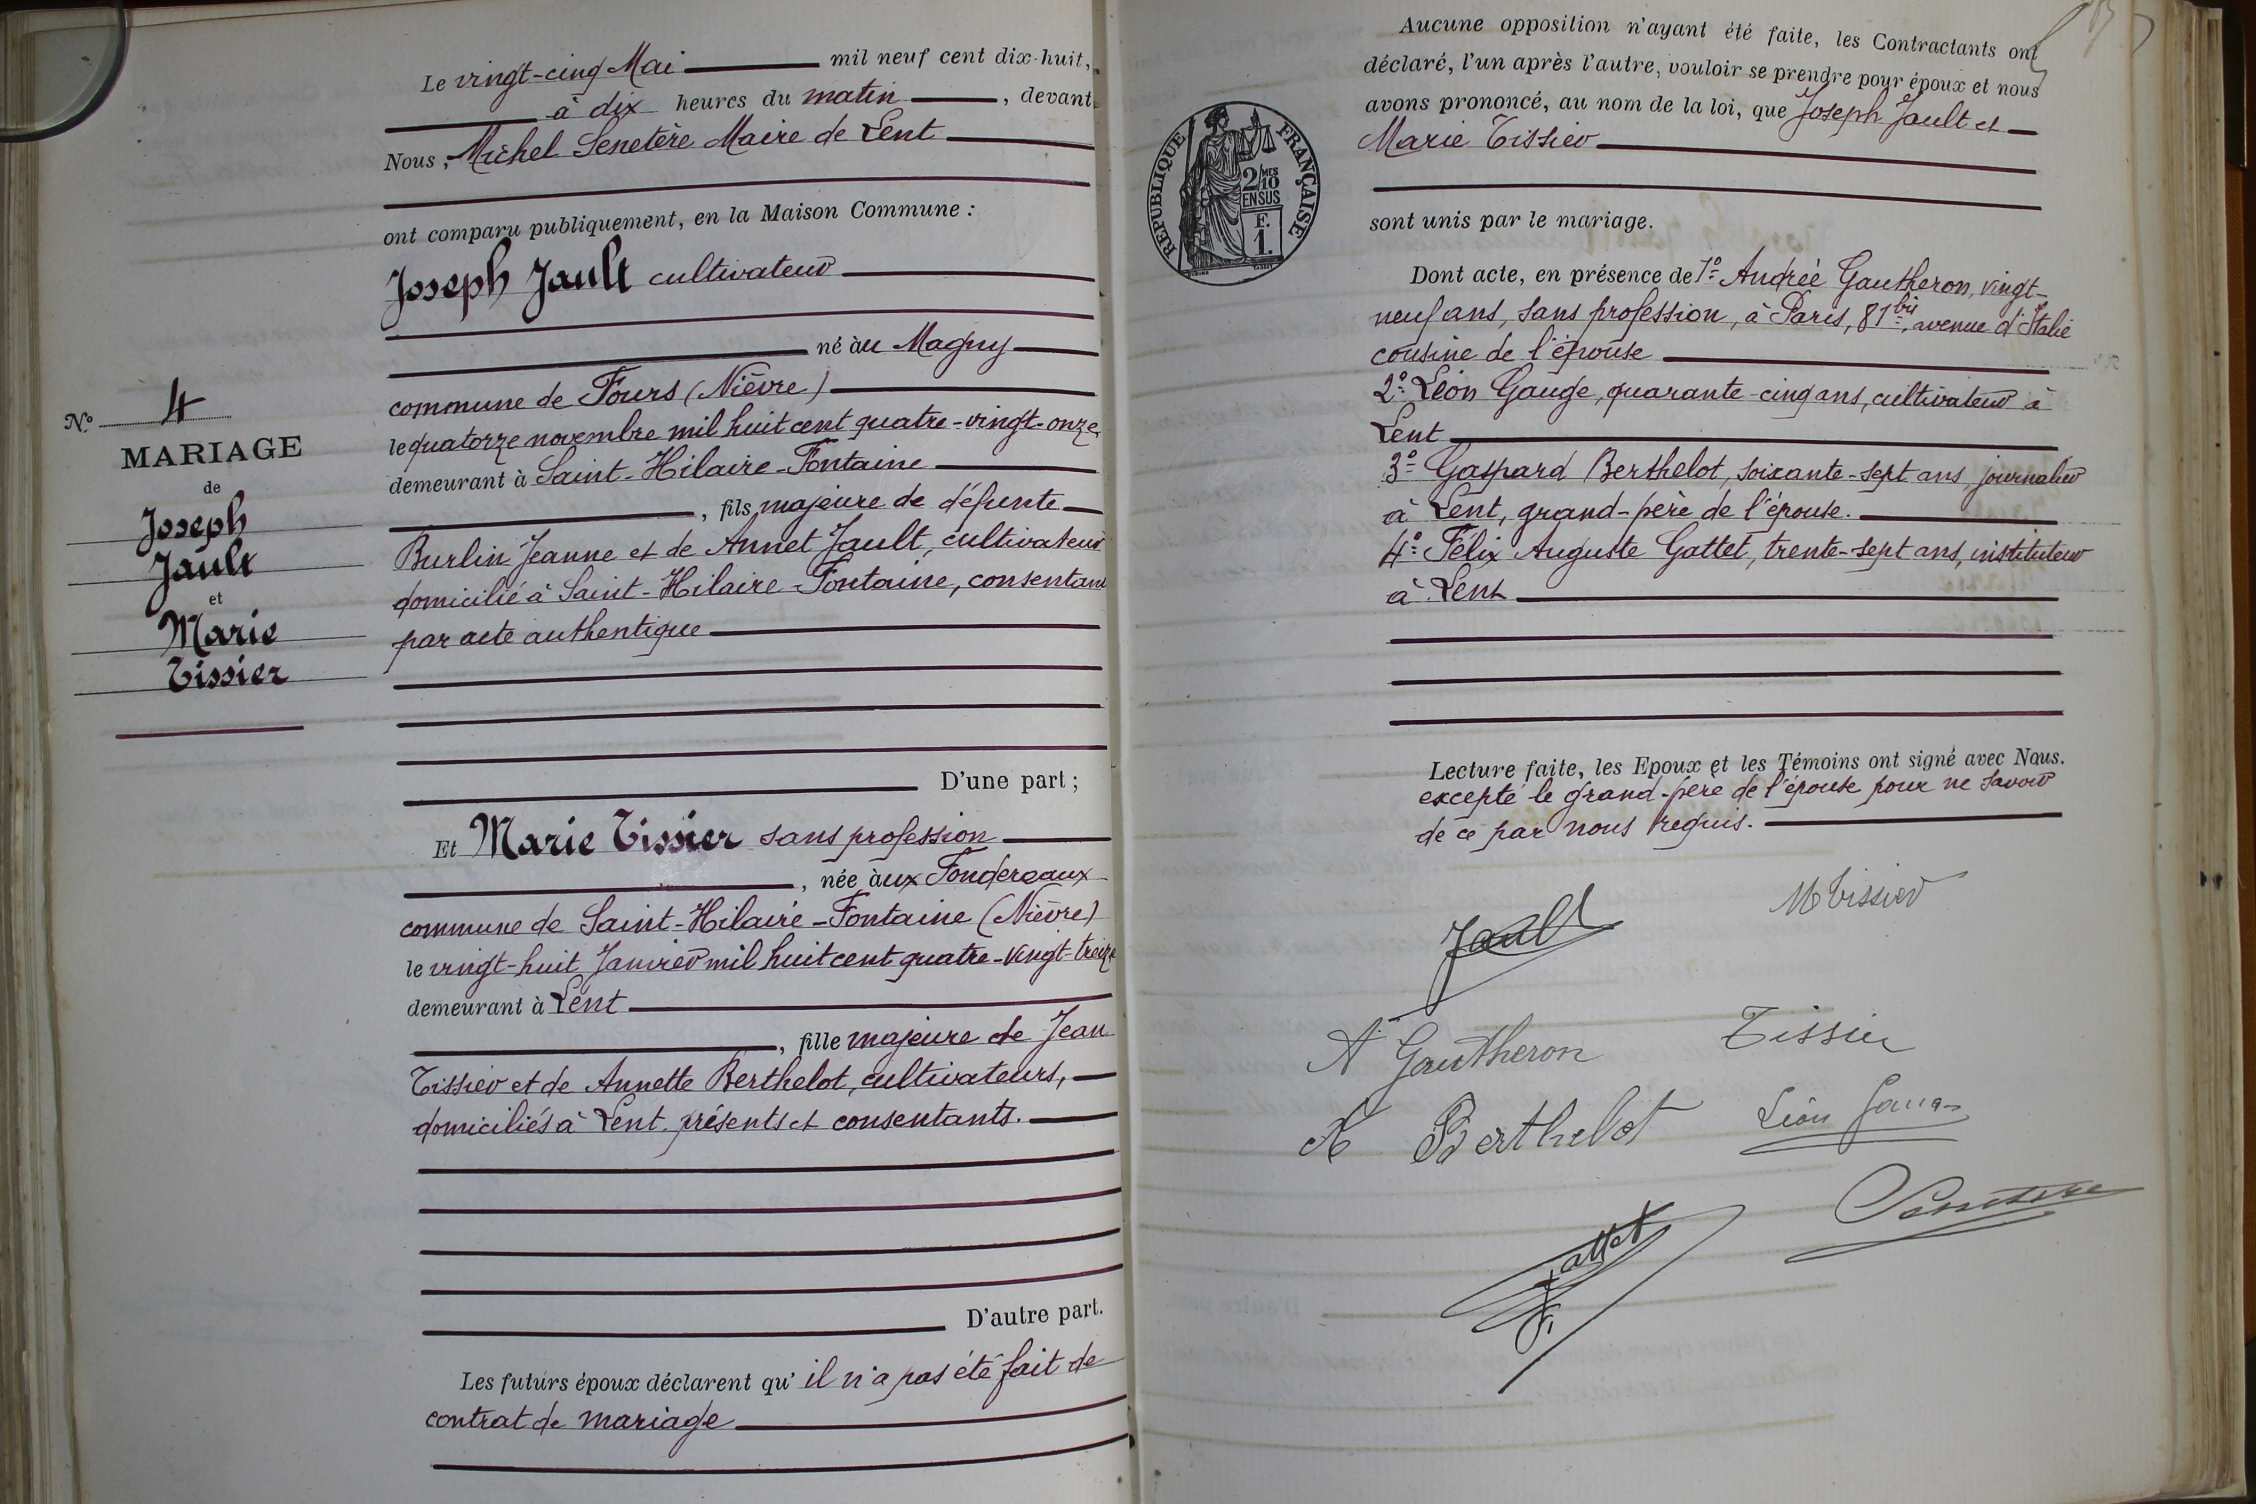 Le vingt-cinq Mai mil neuf cent dix-huit,
à dix heures du matin, devant
Nous, Michel Senetère Maire de Lent
ont comparu publiquement, en la Maison Commune :
Joseph Jault cultivateur
né au Magny
commune de Fours (Nièvre)
le quatorze novembre mil huit cent quatre-vingt-onze,
demeurant à Saint-Hilaire-Fontaine
, fils majeure de défunte
Burlin Jeanne et de Annet Jault, cultivateur
domicilié à Saint-Hilaire-Fontaine, consentant
par acte authentique
D'une part ;
Et Marie Tissier sans profession
, née aux Fondereaux
commune de Saint-Hilaire-Fontaine (Nièvre)
le vingt-huit Janvier mil huit cent quatre-vingt-treize
demeurant à Lent
, fille majeure de Jean
Tissier et de Annette Berthelot, cultivateurs,
domiciliés à Lent présents et consentants.
D'autre part.
Les futurs époux déclarent qu'il n'a pas été fait de
contrat de mariage
No 4
MARIAGE
de
Joseph
Jault
et
Marie
Tissier
Aucune opposition n'ayant été faite, les Contractants ont
déclaré, l'un après l'autre, vouloir se prendre pour époux et nous
avons prononcé, au nom de la loi, que Joseph Jault et
Marie Tissier
sont unis par le mariage.
RÉPUBLIQUE FRANÇAISE
2/10 MES
EN SUS
F.
1.
Dont acte, en présence de 1º Andrée Gautheron, vingt-
neuf ans, sans profession, à Paris, 81 bis, avenue d'Italie
cousine de l'épouse
2º Léon Gauge, quarante-cinq ans, cultivateur à
Lent
3º Gaspard Berthelot, soixante-sept ans, journalier
à Lent, grand-père de l'épouse.
4º Félix Auguste Gattet, trente-sept ans, instituteur
à Lent
Lecture faite, les Epoux et les Témoins ont signé avec Nous.
excepté le grand-père de l'épouse pour ne savoir
de ce par nous requis.
Jault
M Tissier
A Gautheron
Tissier
A Berthelot
Léon Gauge
Senetère
F. Gattet